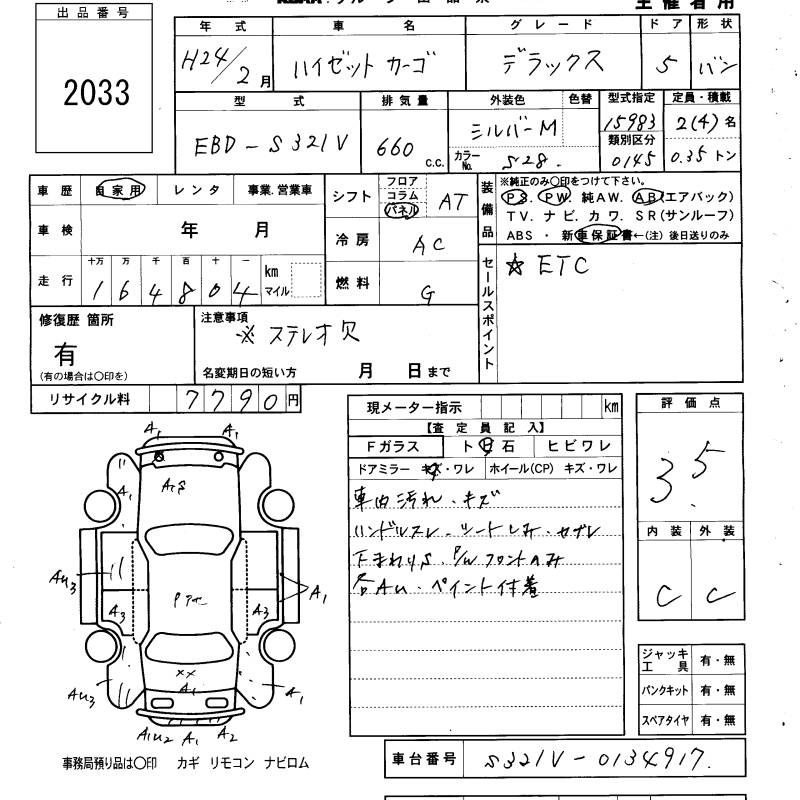 出品番号
2033
年式 車名 グレード ドア 形状
H24/2月 ハイゼット カーゴ デラックス 5 バン
型式 排気量 外装色 色替 型式指定 定員・積載
EBD-S321V 660 c.c. シルバーM 15983 2(4)名
カラーNo. S28. 類別区分 0145 0.35トン
車歴 自家用 レンタ 事業.営業車
シフト フロア コラム パネル AT
装備品 ※純正のみ〇印をつけて下さい。
PS. PW. 純AW. AB(エアバック)
TV. ナビ. カワ. SR(サンルーフ)
ABS ・ 新車保証書←(注) 後日送りのみ
車検 年 月
冷房 AC
走行 十万 万 千 百 十 一 km マイル
164804
燃料 G
セールスポイント ☆ ETC
修復歴 箇所
有
(有の場合は〇印を)
注意事項
※ ステレオ欠
名変期日の短い方 月 日まで
リサイクル料 7790円
現メーター指示 km
【査定員記入】
Fガラス ト日石 ヒビワレ
ドアミラー キズ・ワレ ホイール(CP) キズ・ワレ
車内汚れ・キズ
ハンドルスレ. シートしみ・
下まわりS. P/Wフロントのみ
各AU. ペイント付着
評価点
3.5
内装 外装
C C
ジャッキ工具 有・無
パンクキット 有・無
スペアタイヤ 有・無
車台番号 S321V-0134917.
A1 A1
A1
AU3 A1
A3 A3
AU3 A1 A1
××
A1U2 A1 A2
事務局預り品は〇印 カギ リモコン ナビロム